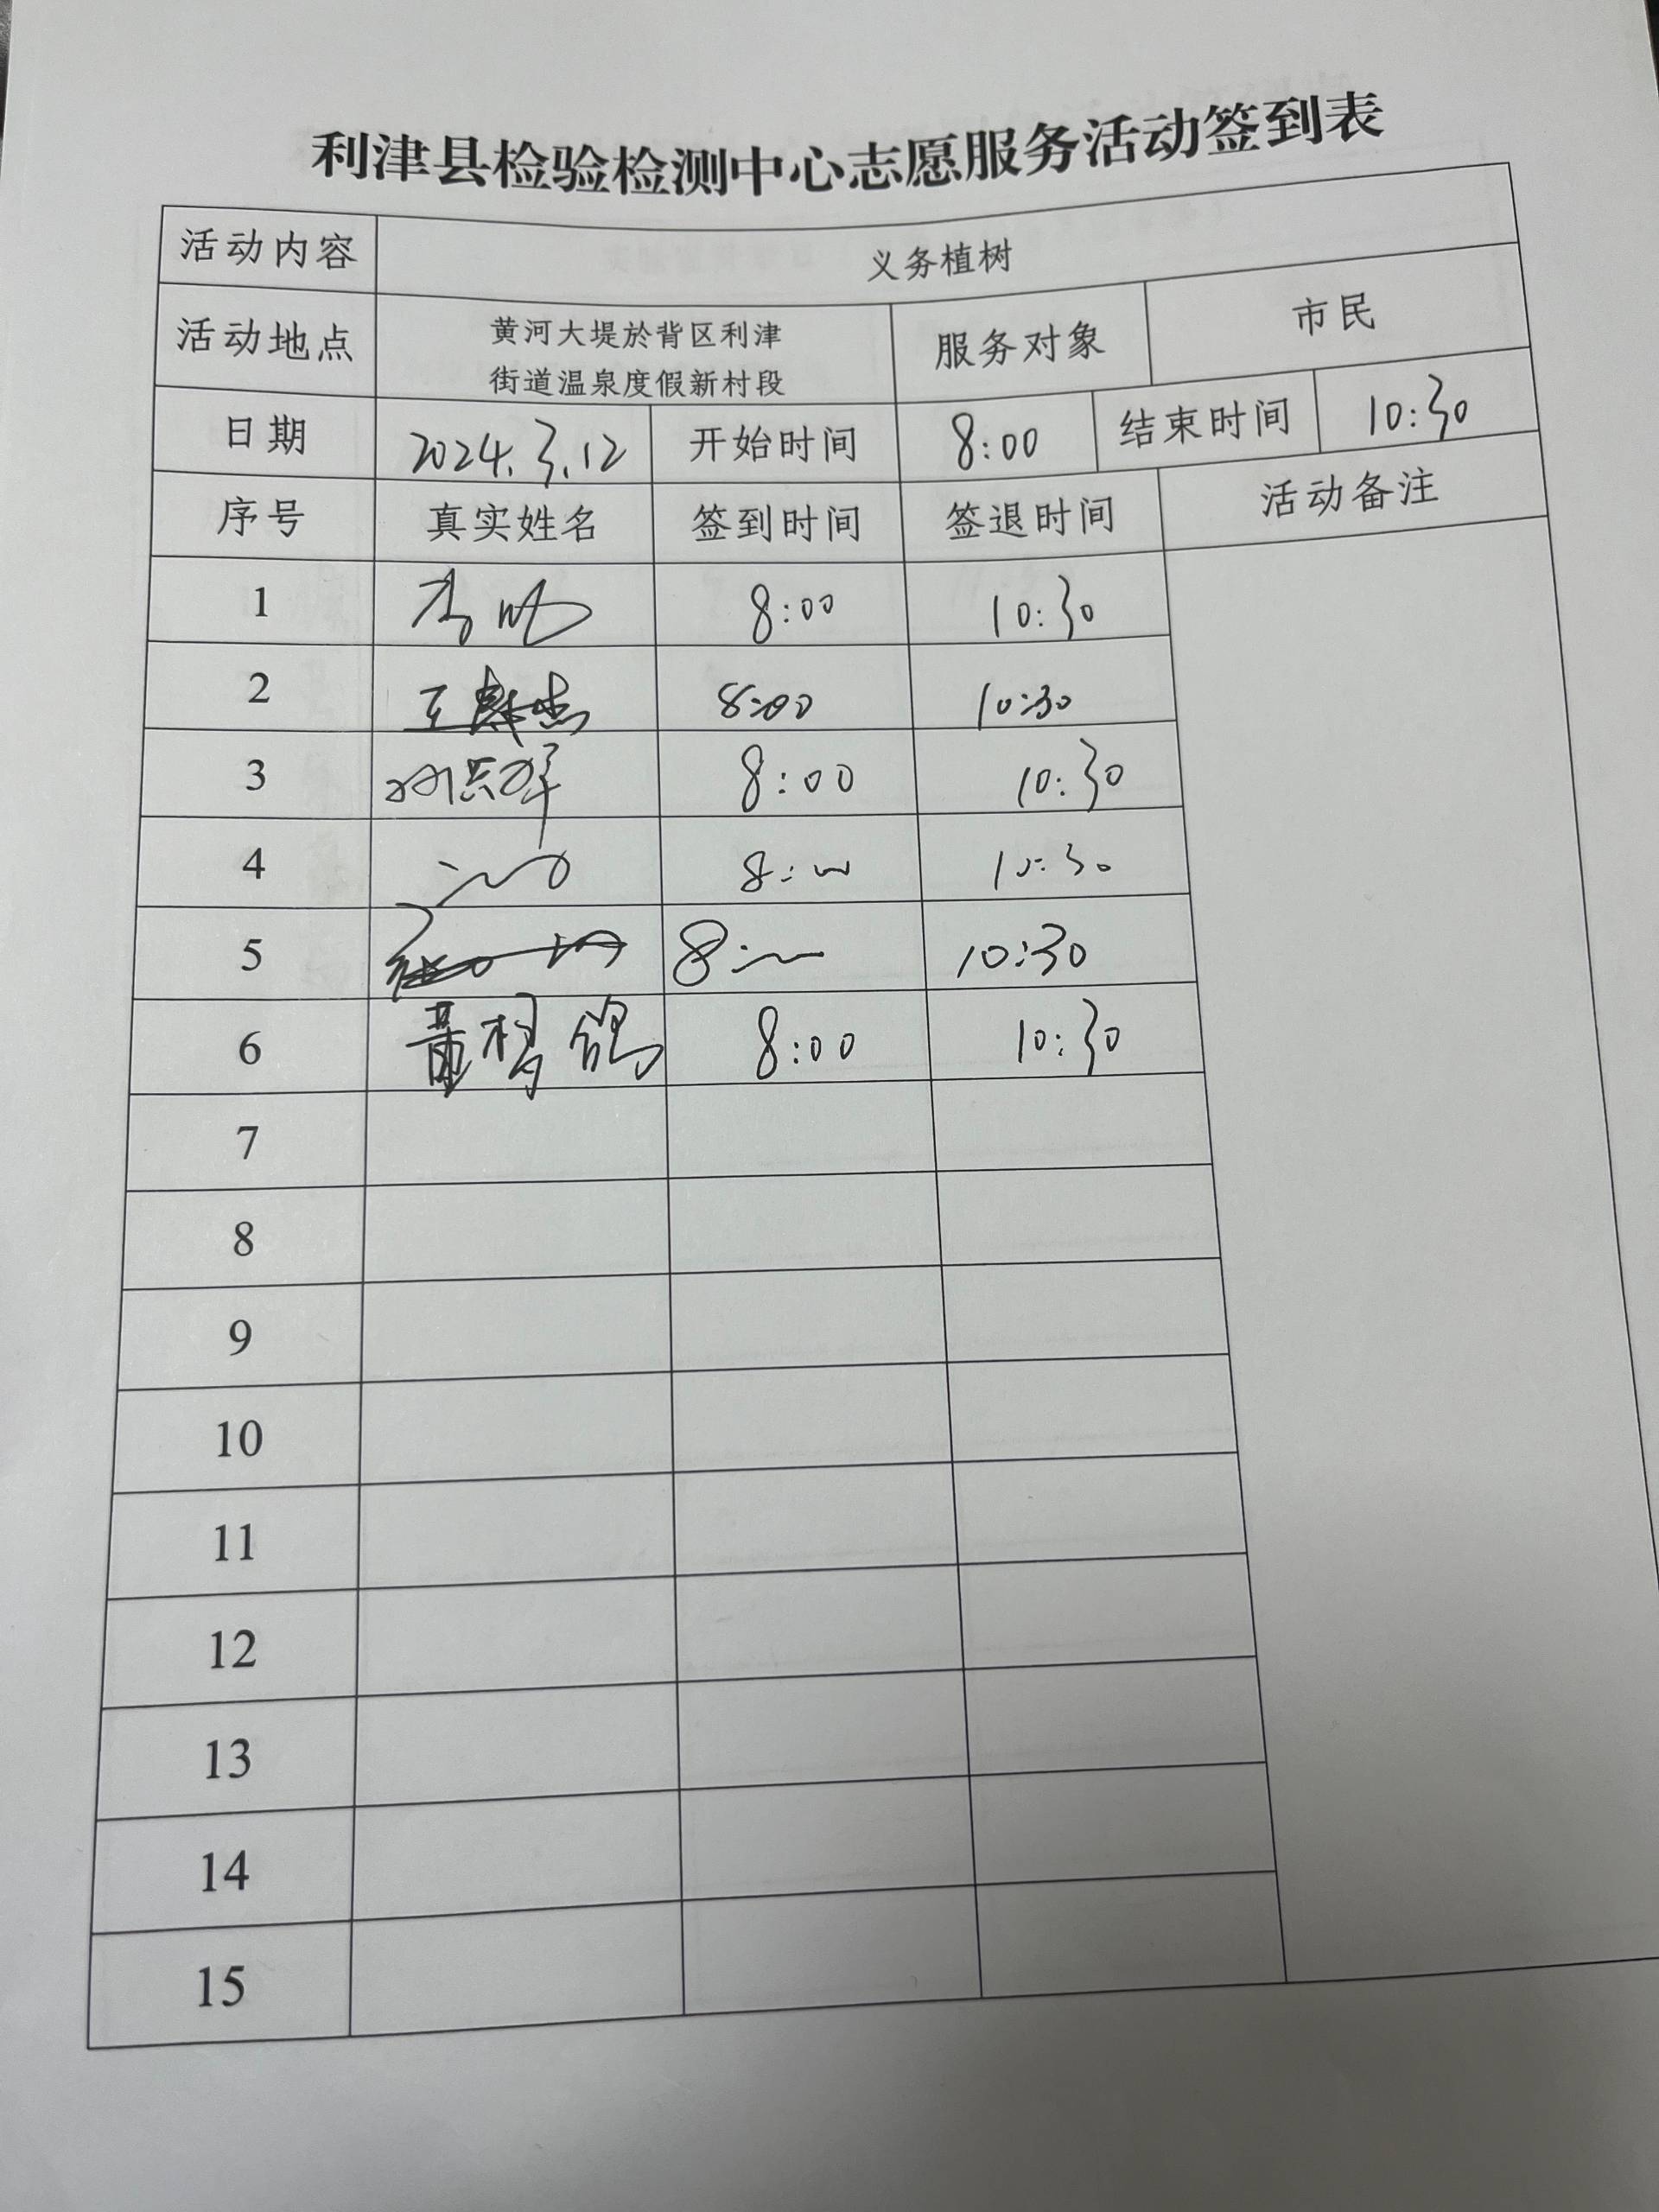 利津县检验检测中心志愿服务活动签到表
活动内容 义务植树
活动地点 黄河大堤於背区利津 服务对象 市民
街道温泉度假新村段
日期 2024.3.12 开始时间 8:00 结束时间 10:30
序号 真实姓名 签到时间 签退时间 活动备注
1 8:00 10:30
2 8:00 10:30
3 8:00 10:30
4 8:00 10:30
5 8: 10:30
6 8:00 10:30
7
8
9
10
11
12
13
14
15